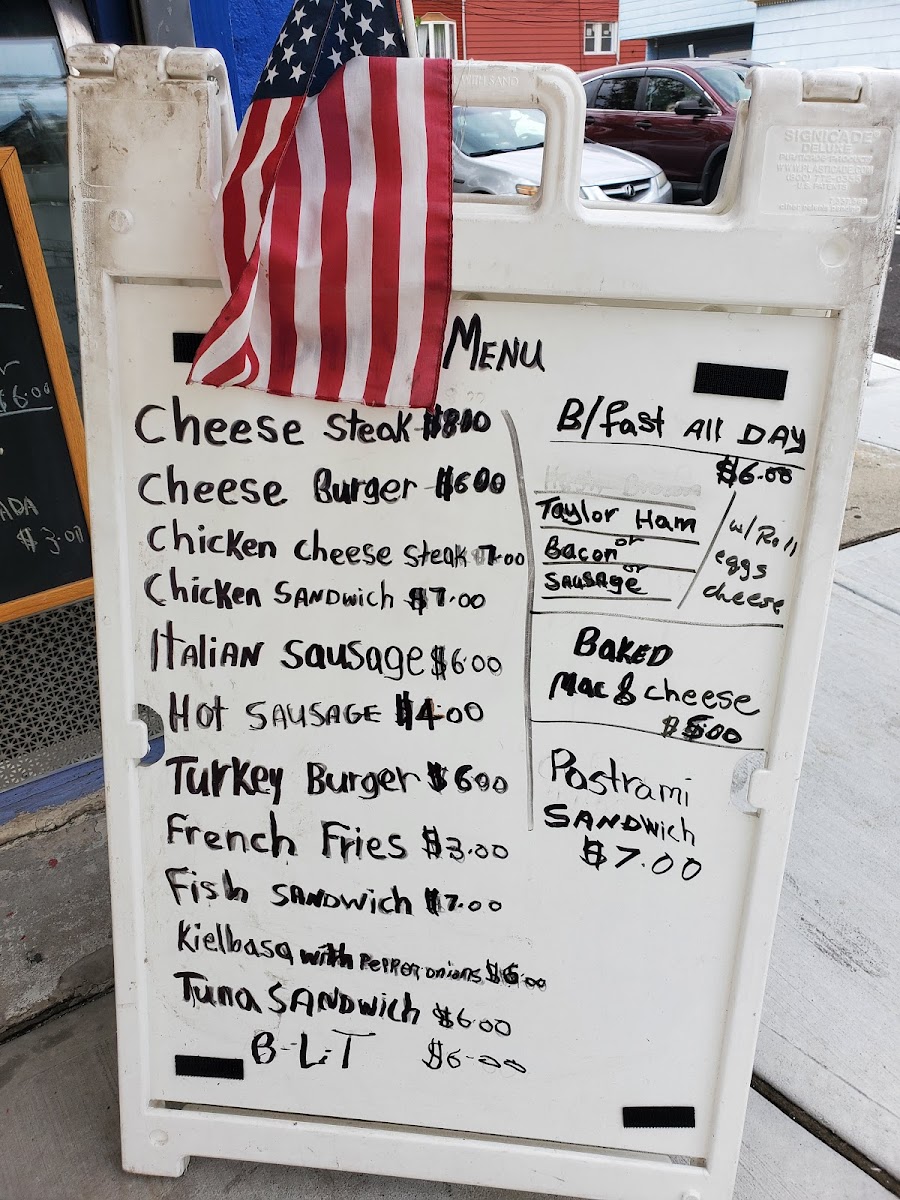 MENU
Cheese Steak $8.00
Cheese Burger $6.00
Chicken cheese steak 7.00
Chicken SANDwich $7.00
Italian Sausage $6.00
Hot SAUSAGE $4.00
Turkey Burger $6.00
French Fries $3.00
Fish SANDwich $7.00
Kielbasa with Pepper onions $6.00
Tuna SANDwich $6.00
B-L-T $6.00
B/fast All DAY
$6.00
Taylor Ham
or
Bacon
or
SAUSAGE
w/ Roll
eggs
cheese
BAKED
Mac & cheese
$5.00
Pastrami
SANDwich
$7.00
SIGNICADE
DELUXE
$6.00
ADA
$3.00